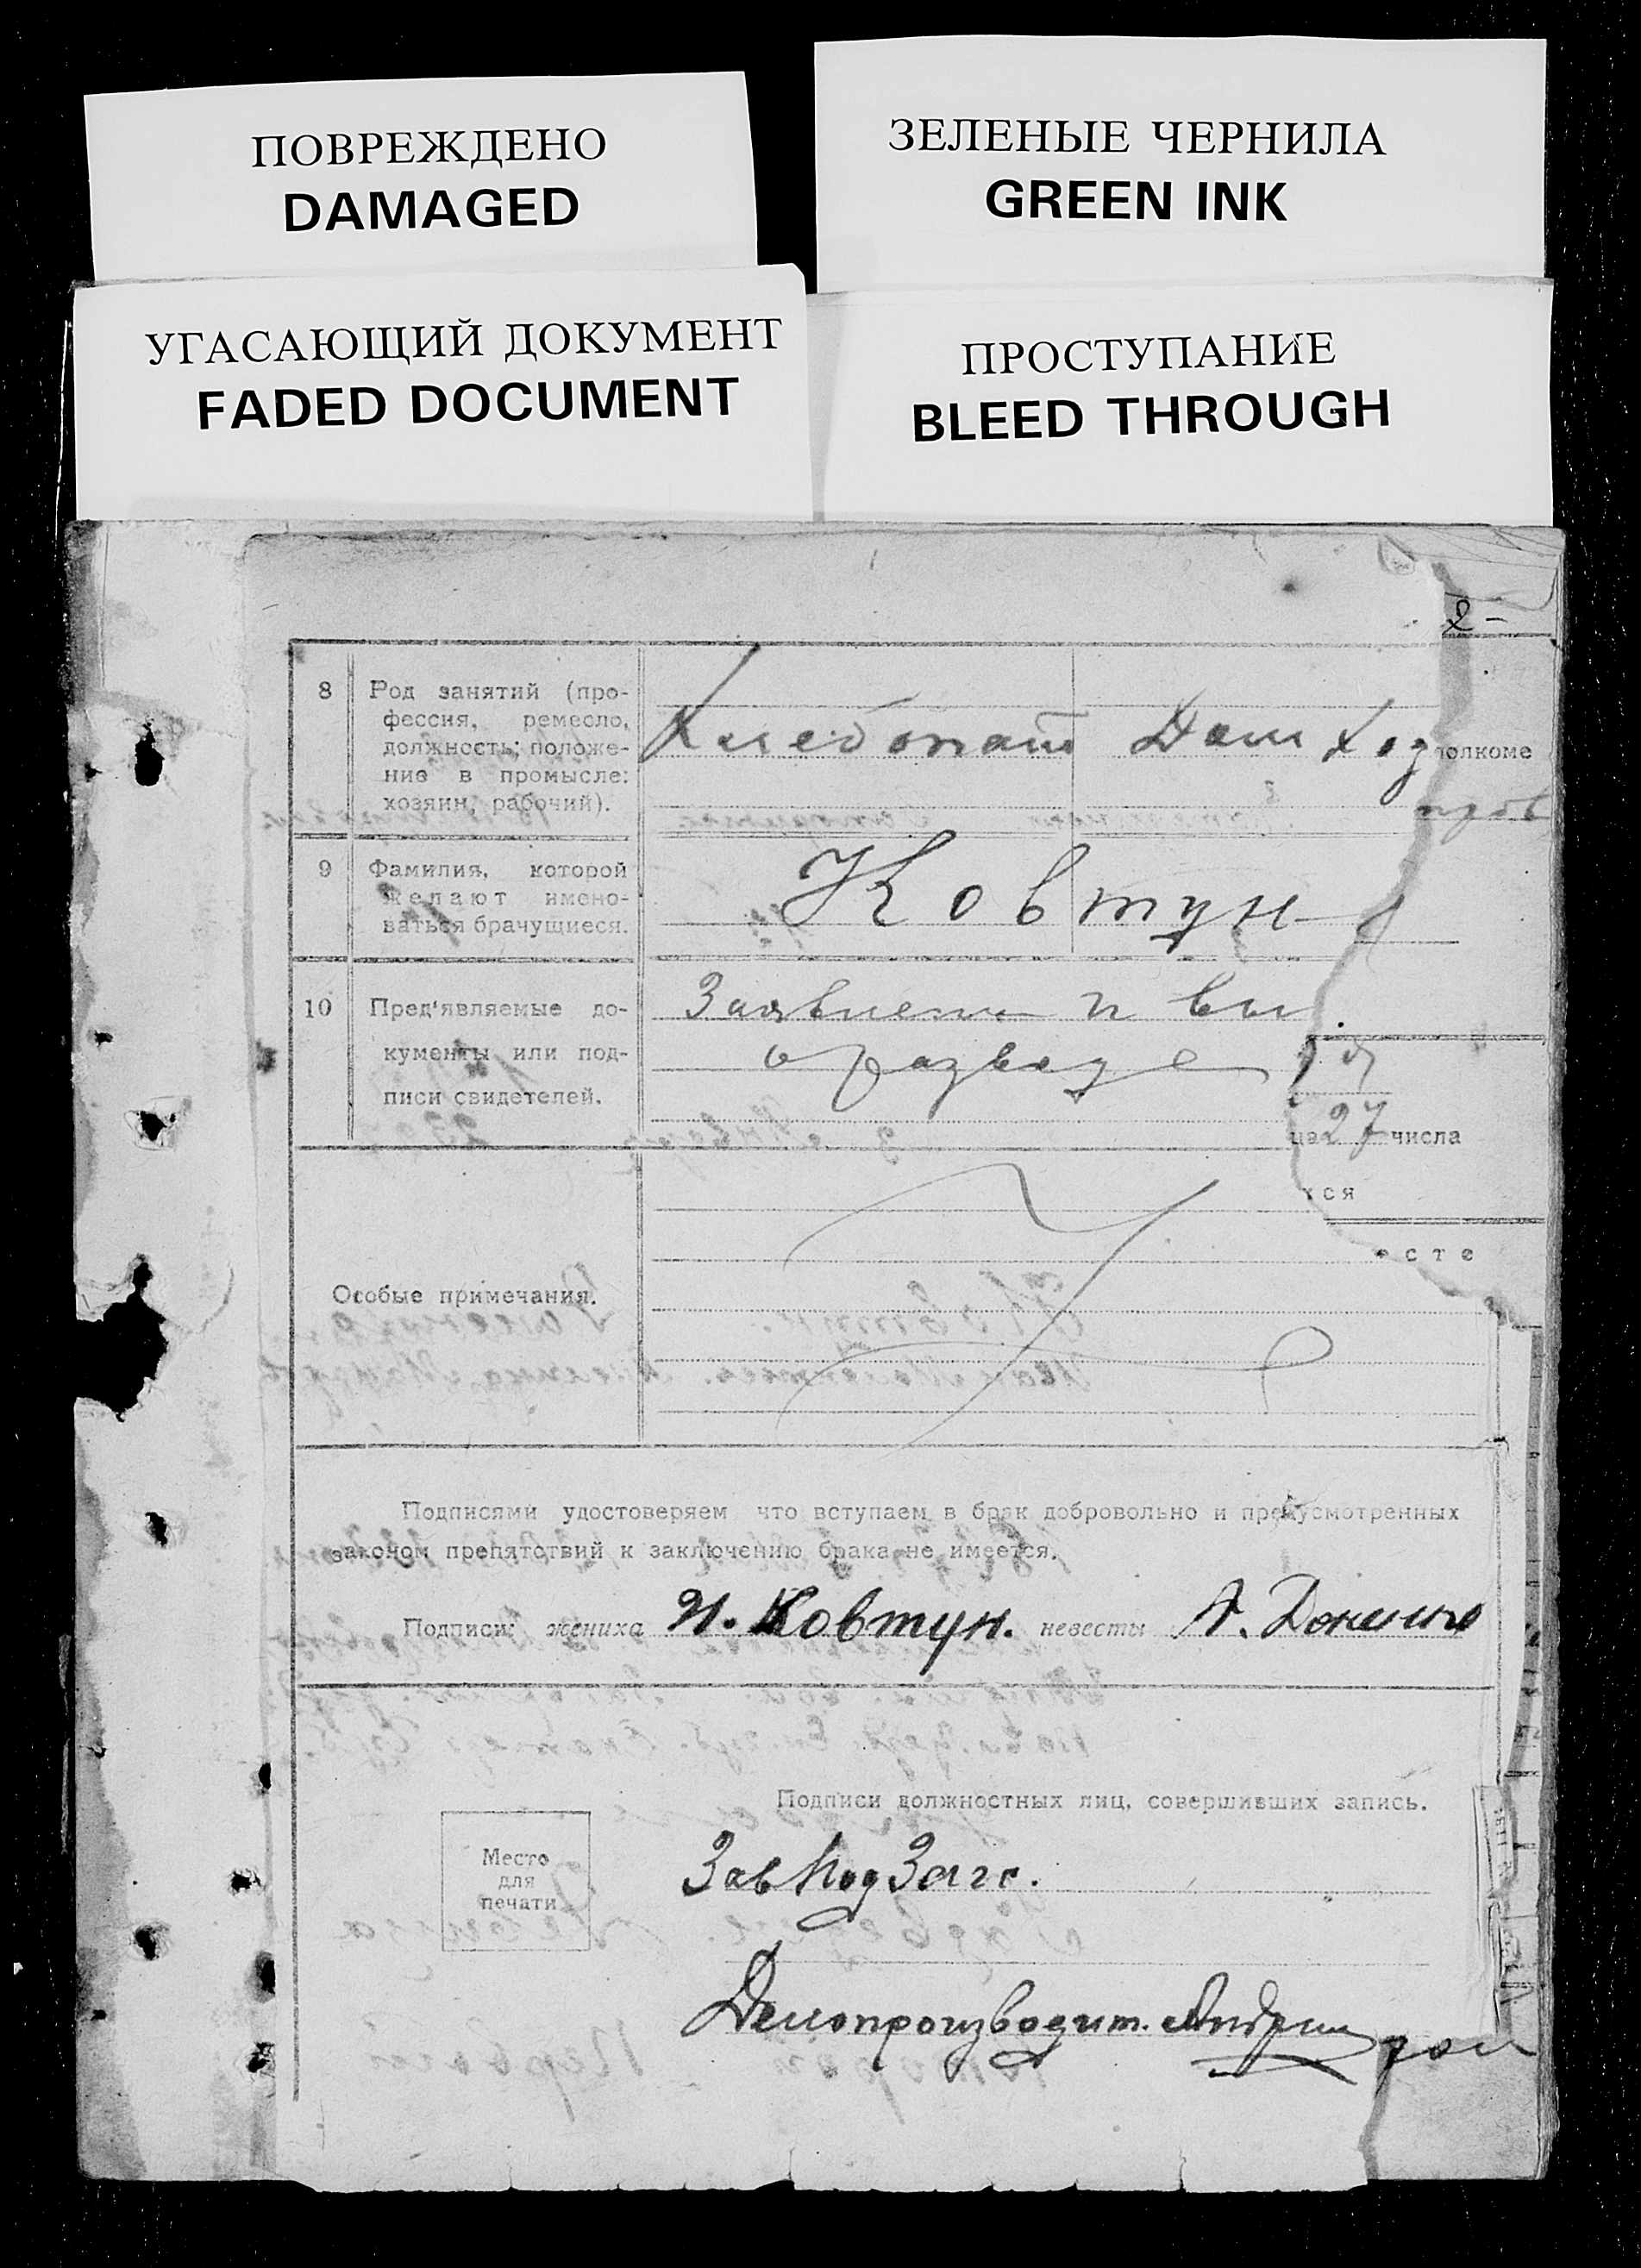 ПОВРЕЖДЕНО
DAMAGED
ЗЕЛЕНЫЕ ЧЕРНИЛА
GREEN INK
УГАСАЮЩИЙ ДОКУМЕНТ
FADED DOCUMENT
ПРОСТУПАНИЕ
BLEED THROUGH
2-
8 Род занятий (про-
фессия, ремесло,
должность; положе-
ние в промысле:
хозяин, рабочий).
Хлебопаш Дом Хоз
олкоме
9 Фамилия, которой
желают имено-
ваться брачущиеся.
Ковтун
10 Пред'являемые до-
кументы или под-
писи свидетелей.
Заявлении и вы
о разводе
27 числа
тся
есте
Особые примечания.
Подписями удостоверяем что вступаем в брак добровольно и предусмотренных
законом препятствий к заключению брака не имеется.
Подписи: жениха И. Ковтун. невесты А.
Подписи должностных лиц, совершивших запись.
Место
для
печати
Зав Под Загс.
Делопроизводит.